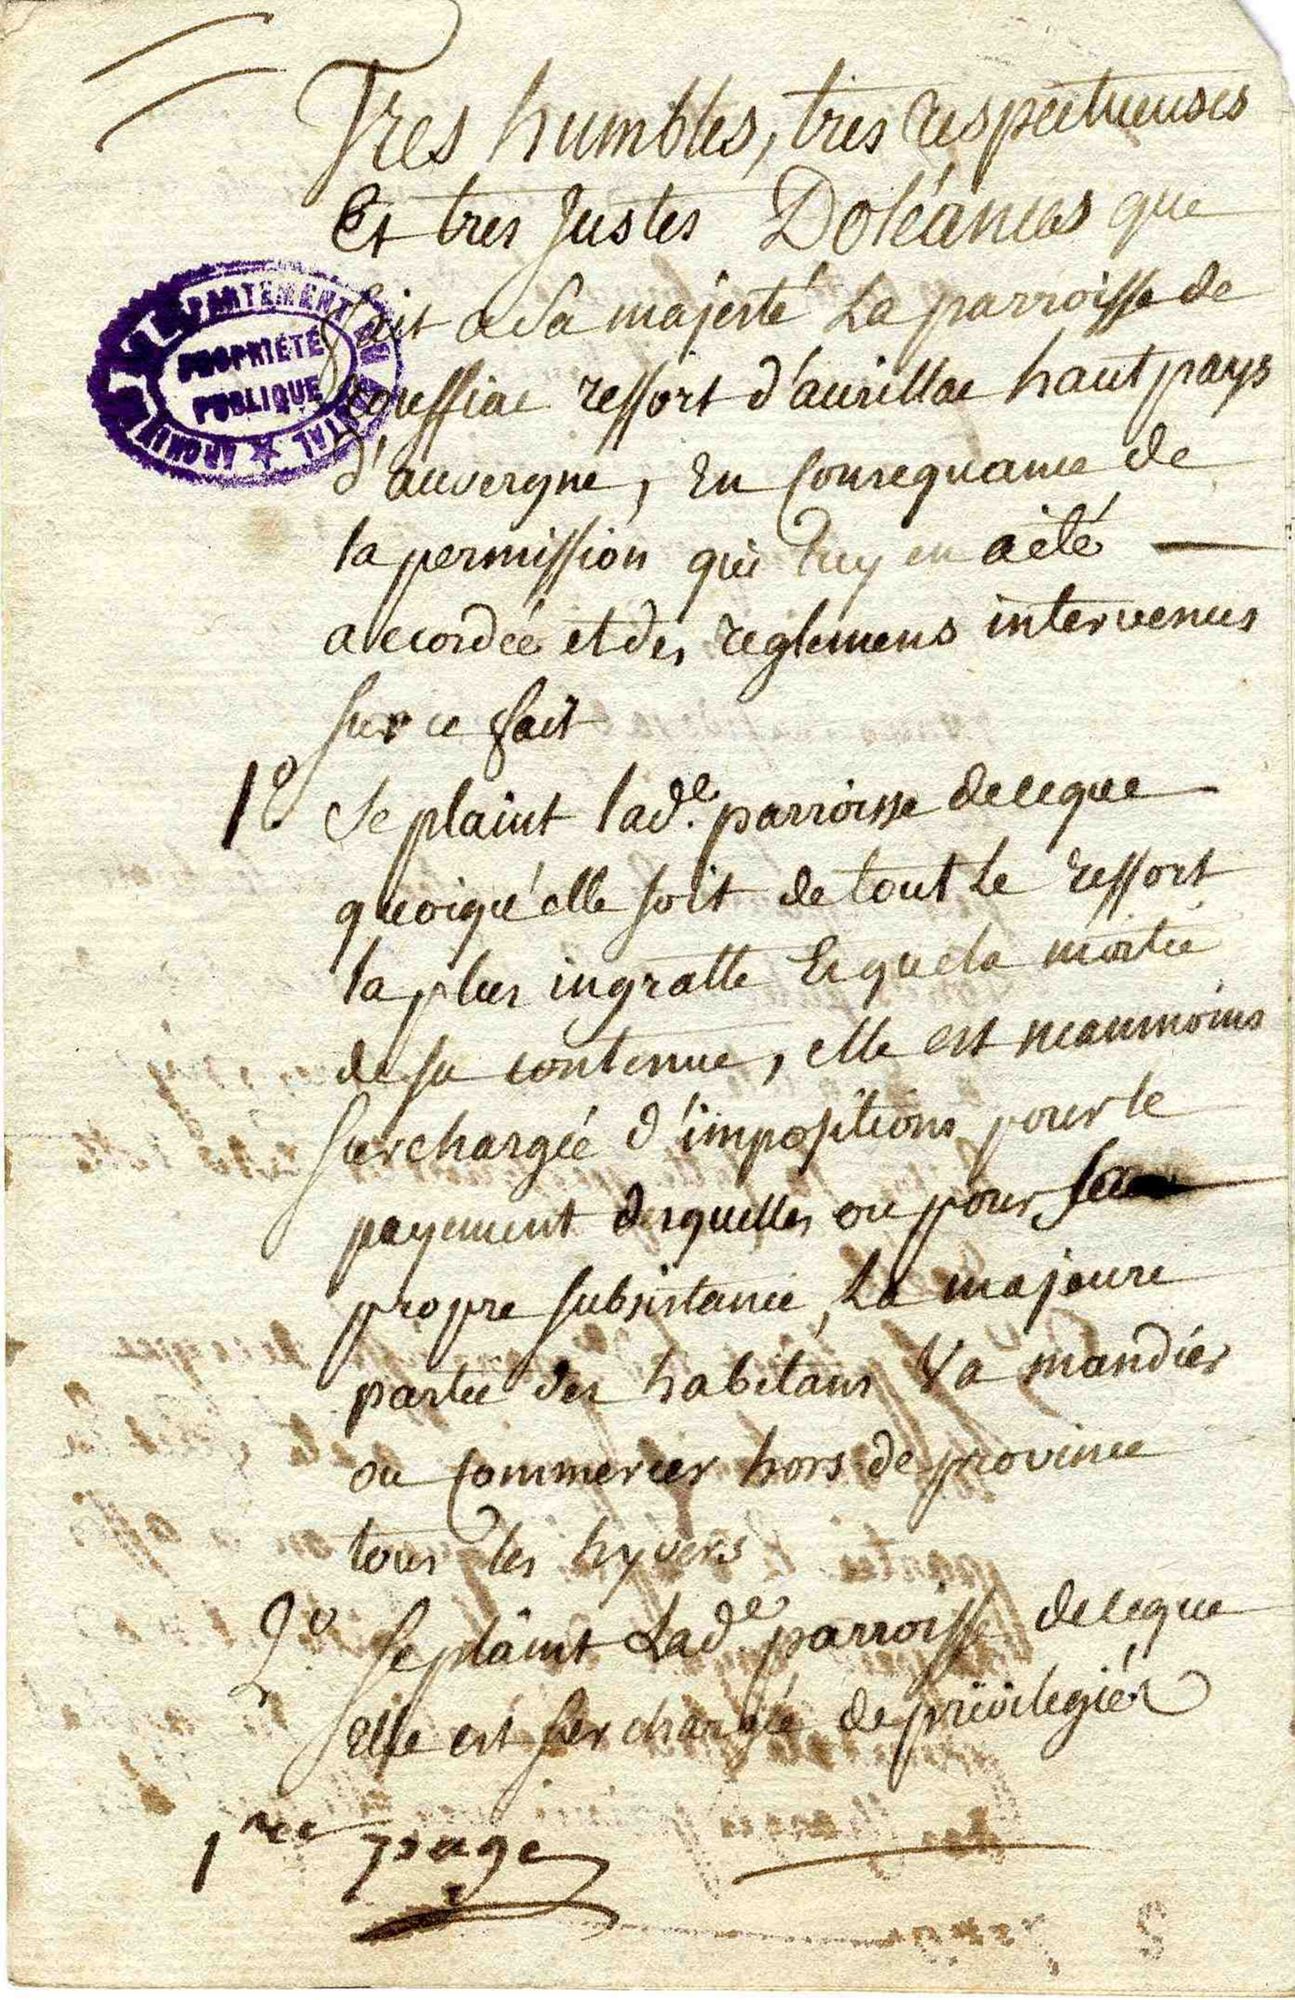 Tres humbles, tres respectueuses
Et tres Justes Doléances que
fait a Sa majesté La parroisse de
rouffiac ressort d'aurillac haut pays
d'auvergne, en Consequance de
la permission qui luy en a été
accordée et des reglemens intervenus
sur ce fait
1º Se plaint lad.e parroisse de ce que
quoiqu'elle soit de tout Le ressort
la plus ingratte Et que la moitié
de sa contenue, elle est neanmoins
surchargée d'impositions pour le
payement desquelles ou pour sa
propre subsistance, La majeure
partie des habitans Va mandier
ou Commercer hors de province
tous les hyvers
2º Se plaint Lad.e parroisse de ce que
Elle est surchargée de privilegiés
1ree page
ARCHIVES DÉPARTEMENT DU CANTAL
PROPRIÉTÉ
PUBLIQUE